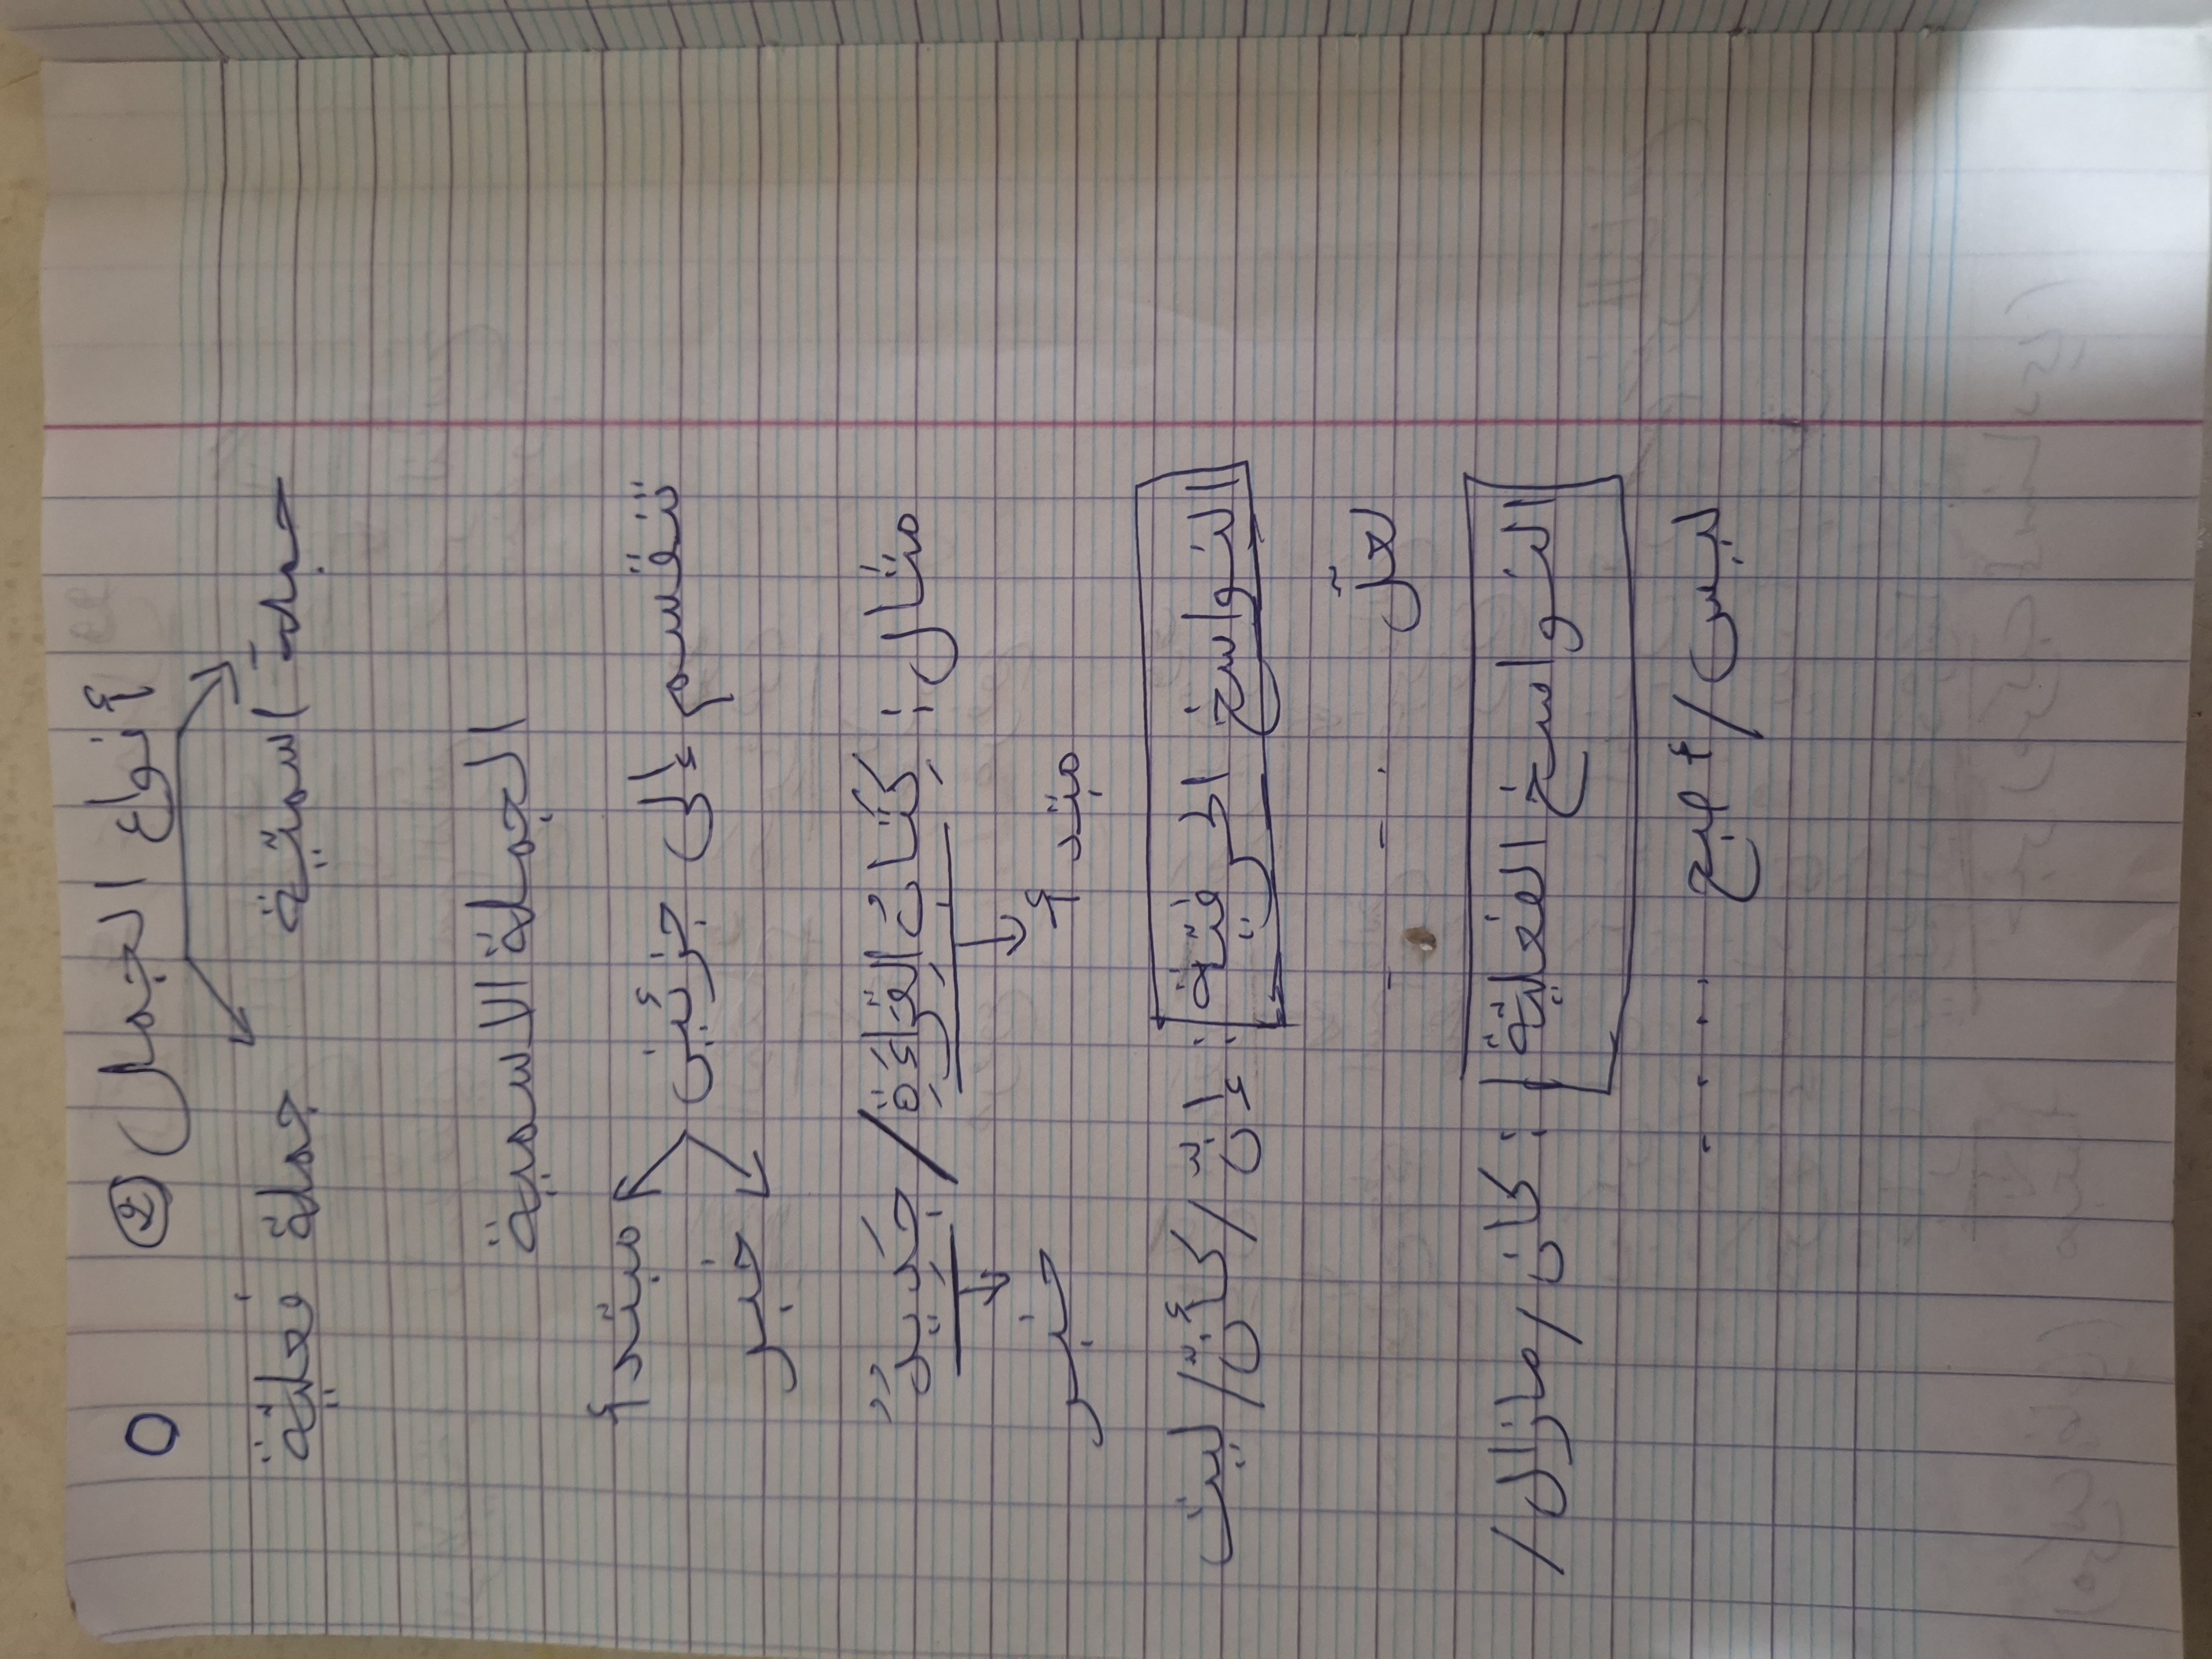 ② أنواع الجمل
جملة اسميّة جملة فعليّة
الجملة الاسمية
تنقسم إلى جزئين
مبتدأ
خبر
مثال: كِتَابُ القِرَاءَةِ / جَدِيدٌ
مبتدأ خبر
النواسخ الحرفيّة: إنّ / كأنّ / ليت
لعلّ ....
النواسخ الفعليّة: كان / مازال /
ليس / أصبح ....